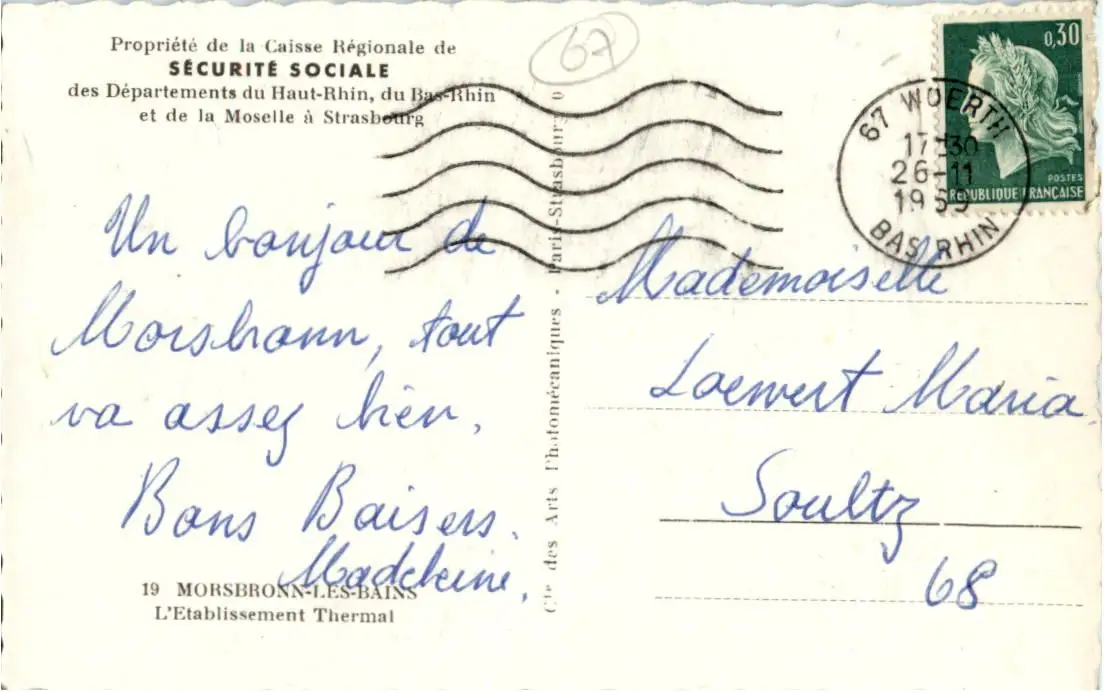 Propriété de la Caisse Régionale de
SÉCURITÉ SOCIALE
des Départements du Haut-Rhin, du Bas-Rhin
et de la Moselle à Strasbourg
67
0,30
POSTES
REPUBLIQUE FRANÇAISE
67 WOERTH
17-30
26-11
19
BAS RHIN
Un bonjour de
Morsbronn, tout
va assez bien.
Bons Baisers.
Madeleine.
19 MORSBRONN-LES-BAINS
L'Etablissement Thermal
Cie des Arts Photomécaniques - Paris-Strasbourg
Mademoiselle
Loewert Maria
Soultz
68